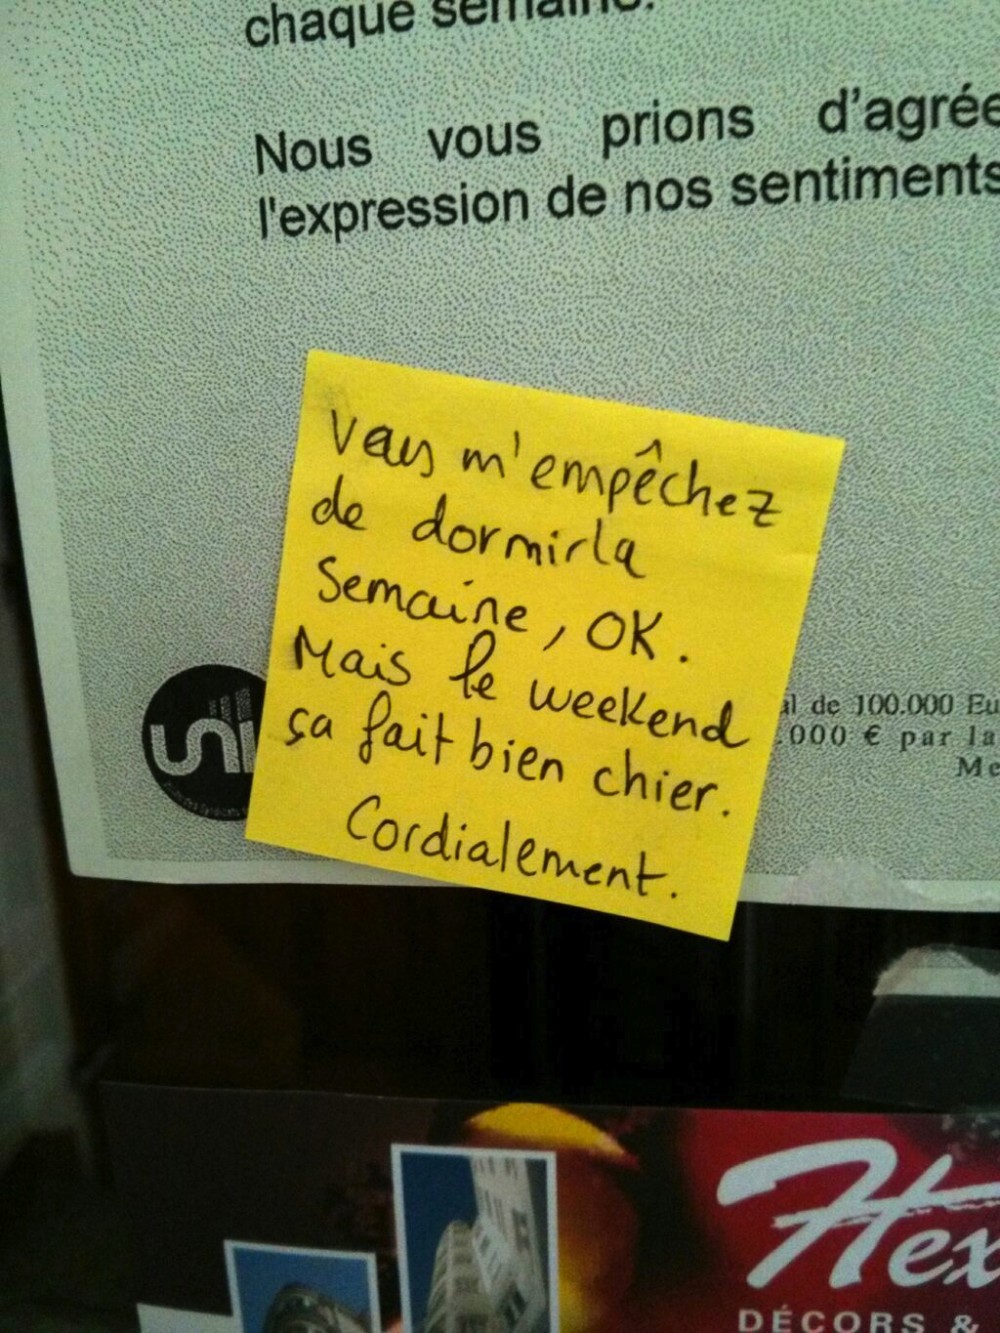 chaque semaine.
Nous vous prions d'agrée
l'expression de nos sentiments
Vous m'empêchez
de dormir la
semaine, OK.
Mais le weekend
ça fait bien chier.
Cordialement.
uni
al de 100.000 Eu
.000 € par la
Me
Hex
DÉCORS &